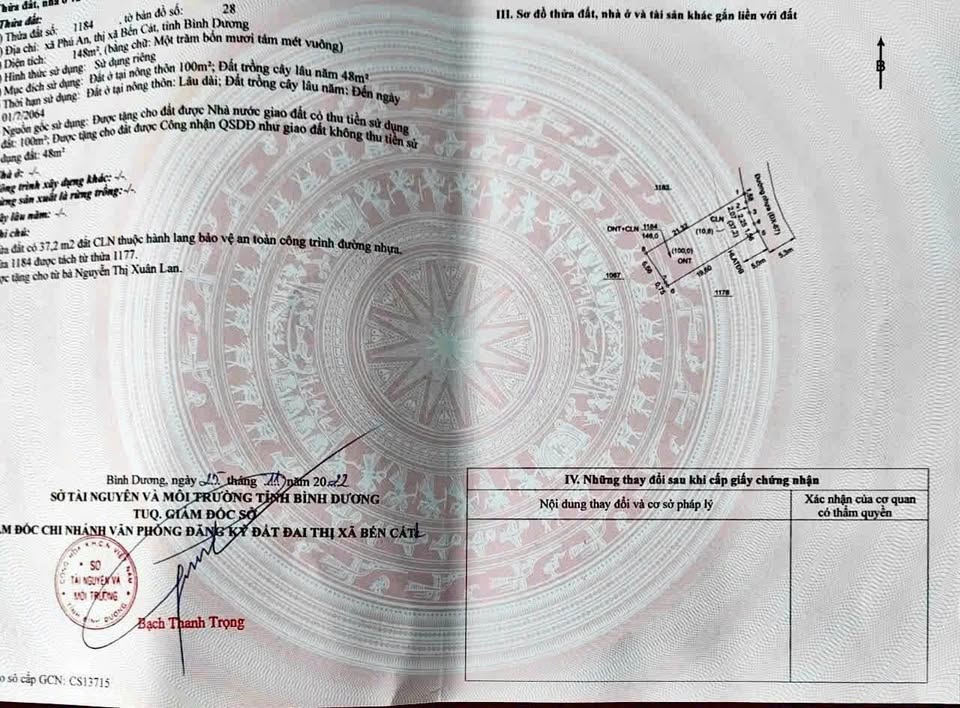 Thửa đất:
) Thửa đất số: 1184 , tờ bản đồ số: 28
) Địa chỉ: xã Phú An, thị xã Bến Cát, tỉnh Bình Dương
) Diện tích: 148m², (bằng chữ: Một trăm bốn mươi tám mét vuông)
) Hình thức sử dụng: Sử dụng riêng
) Mục đích sử dụng: Đất ở tại nông thôn 100m²; Đất trồng cây lâu năm 48m²
) Thời hạn sử dụng: Đất ở tại nông thôn: Lâu dài; Đất trồng cây lâu năm: Đến ngày
01/7/2064
Nguồn gốc sử dụng: Được tặng cho đất được Nhà nước giao đất có thu tiền sử dụng
đất: 100m²; Được tặng cho đất được Công nhận QSDĐ như giao đất không thu tiền sử
dụng đất: 48m²
hà ở: -/-
ông trình xây dựng khác: -/-
ừng sản xuất là rừng trồng: -/-.
ây lâu năm: -/-
hi chú:
ửa đất có 37,2 m2 đất CLN thuộc hành lang bảo vệ an toàn công trình đường nhựa.
ửa 1184 được tách từ thửa 1177.
ợc tặng cho từ bà Nguyễn Thị Xuân Lan.
Bình Dương, ngày 25 tháng 11 năm 2022
SỞ TÀI NGUYÊN VÀ MÔI TRƯỜNG TỈNH BÌNH DƯƠNG
TUQ. GIÁM ĐỐC SỞ
M ĐỐC CHI NHÁNH VĂN PHÒNG ĐĂNG KÝ ĐẤT ĐAI THỊ XÃ BẾN CÁT
SỞ
TÀI NGUYÊN VÀ
MÔI TRƯỜNG
Bạch Thanh Trọng
o sổ cấp GCN: CS13715
III. Sơ đồ thửa đất, nhà ở và tài sản khác gắn liền với đất
B
1183
ONT+CLN 1184
148,0
21,32
CLN
(10,8)
(37,2)
(100,0)
ONT
Đường nhựa (ĐX-67)
HLATĐB
19,60
6,56
0,75
5,0m
5,3m
1067
1178
IV. Những thay đổi sau khi cấp giấy chứng nhận
Nội dung thay đổi và cơ sở pháp lý
Xác nhận của cơ quan
có thẩm quyền